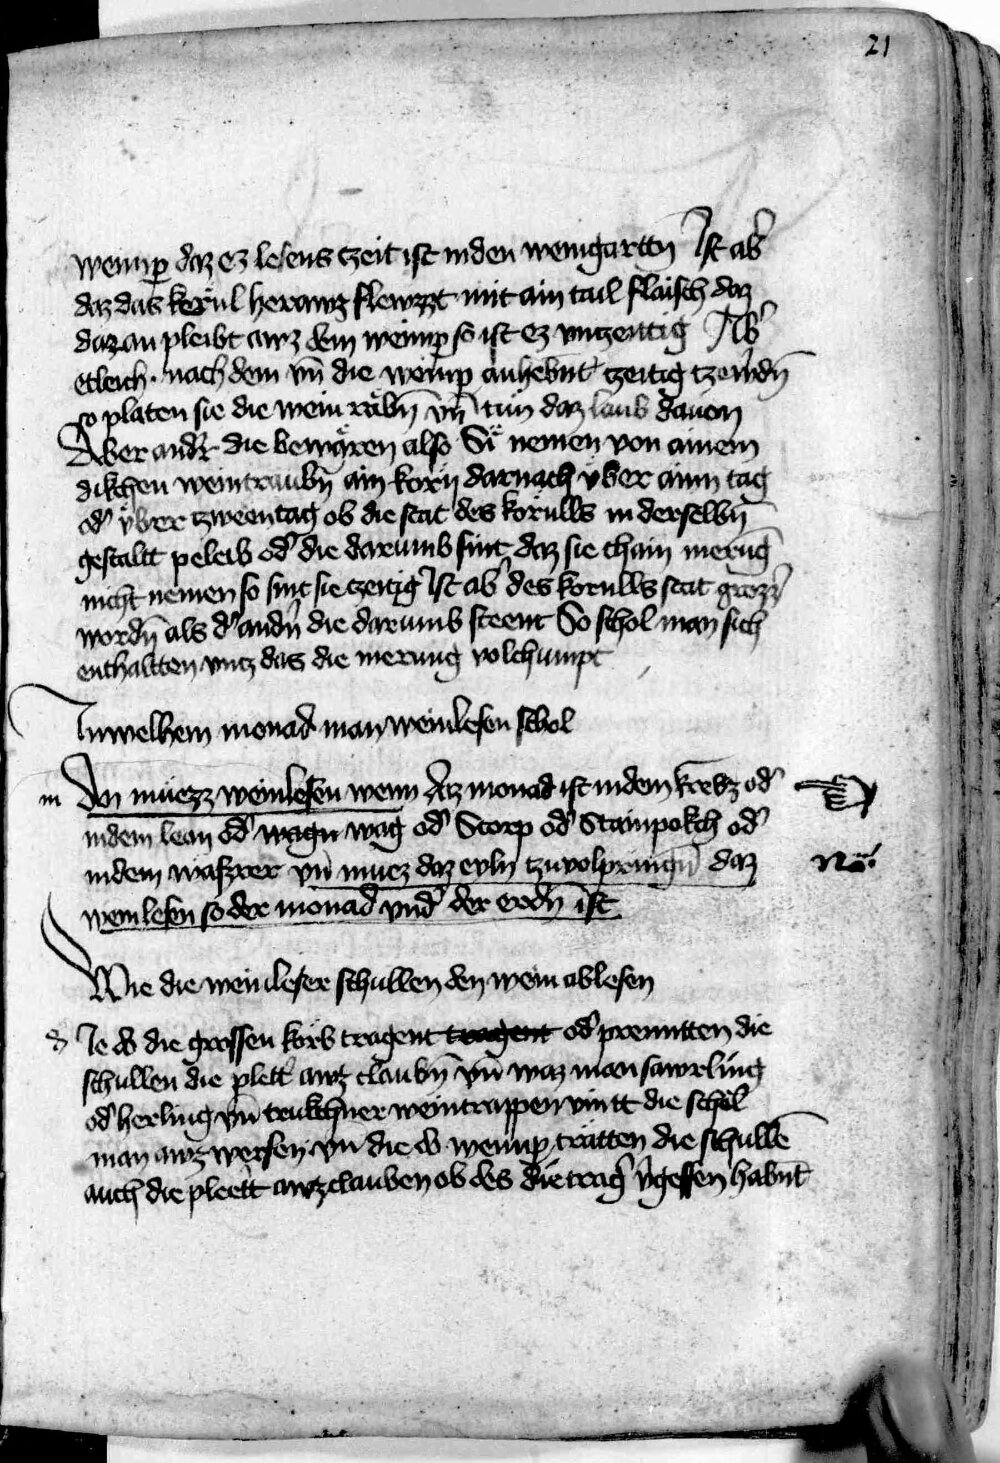 21
weinper daz ez lesens tzeit ist in den weingartten Ist ab̛
daz das kerᷠul herawz flewzzt mit ain tail flaisch daz
dar an pleibt awz dem weinper so ist ez vntzeittig Ab̛
etleich nach dem vn̄ die weinper anhebn̄t tzeitig tzewrdn̄
so platen sie die wein rabn̄ vn̄ tun daz laub dauon
Aber andr̛ die bewären also Si nemen von ainem
dikchen weintraubn̄ ain korn darnach vber ainn tag
od̛ vber tzween tag ob die stat des korulls in derselbn̄
gestaltt peleib od̛ die darumb sint daz sie chain merūg
nicht nemen so sint sie tzeitig Ist ab̛ des korulls stat grozz̛
wordn̄ als d̛ andn̛ die darumb steent So schol man sich
enthaltten vntz das die merung volchumpt
In welhem monad man weinlesen schol
m An muezz weinlesen wenn der monad ist in dem krebz od̛
in dem leon od̛ wagn wag od̛ Scorp od̛ Stainpokch od̛
in dem wazzrer vn̄ muez daz eyln tzuvolpringn̄ daz
weinlesen so der monad vnd̛ der erdn̄ ist
Nᵃ
Wie die weinleser schullen den wein ablesen
d Ie do die grossen korb tragent tragent od̛ prenntten die
schullen die plett̛ awz claubn̄ vn̄ waz man sawrling
od̛ herling vn̄ trukchner weintrappen vintt die schol
man awz werfen vn̄ die do weinper trätten die schullē
auch die plett̛ awzclauben ob des die trag̛ v̛gessen habn̄t